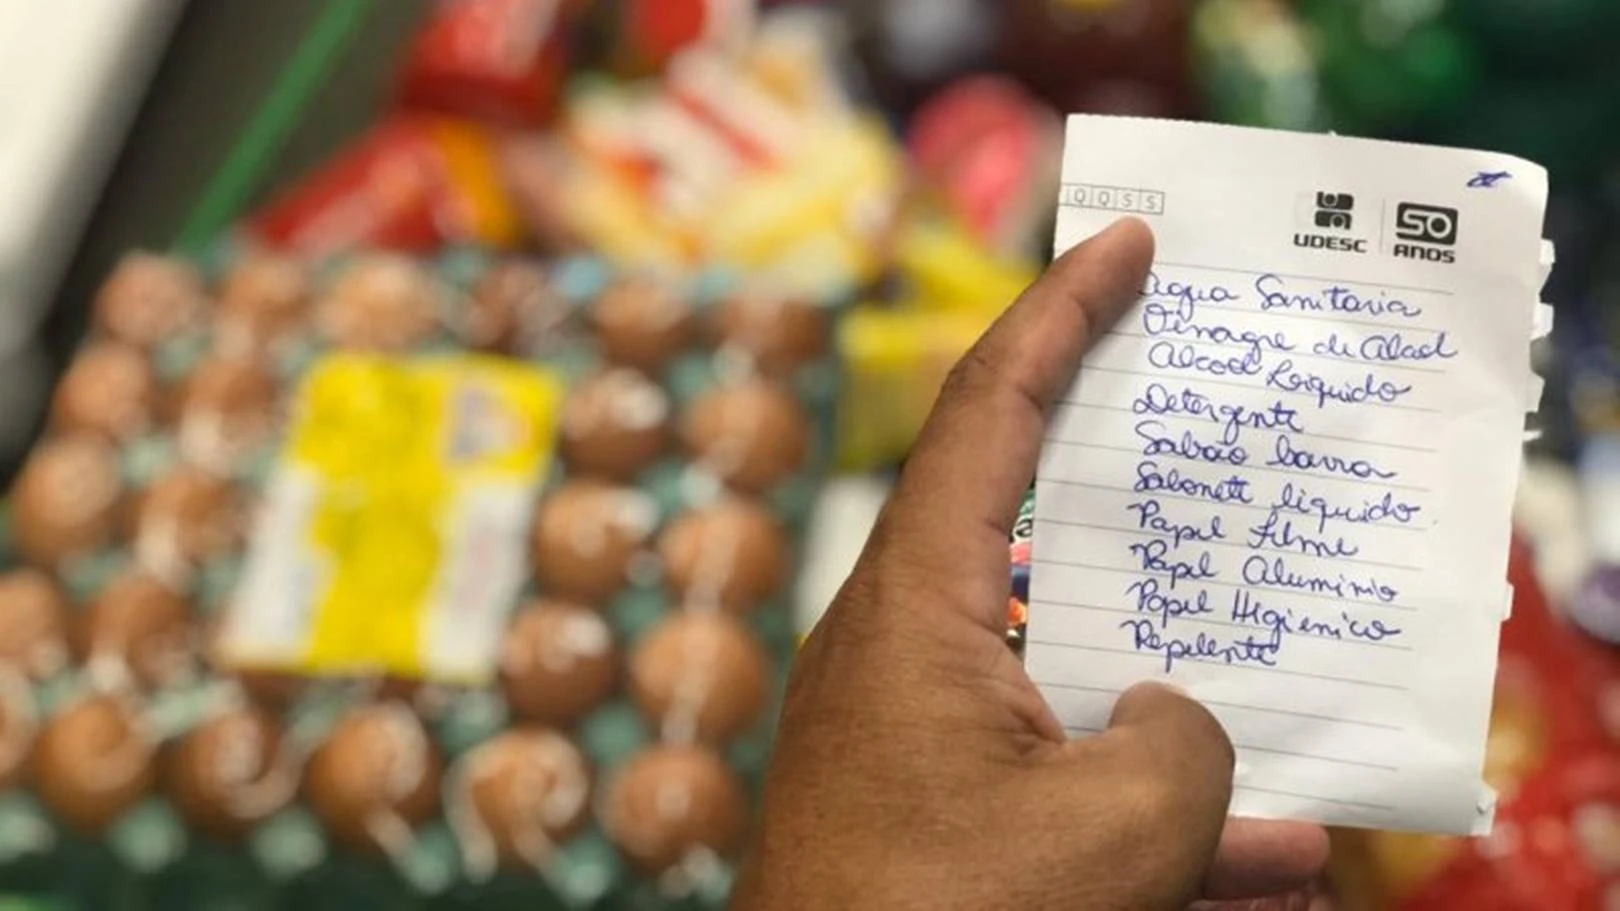 Q Q S S
UDESC
50
ANOS
Agua Sanitaria
Vinagre de Alcool
Alcool Leiquido
Detergente
Sabão barra
Sabonete líquido
Papel Filme
Papel Aluminio
Papel Higienico
Repelente